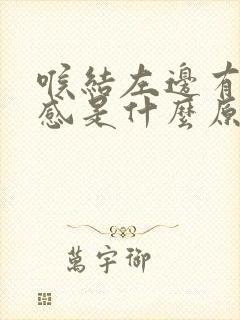 喉結左邊有
感是什麼原
萬宇御